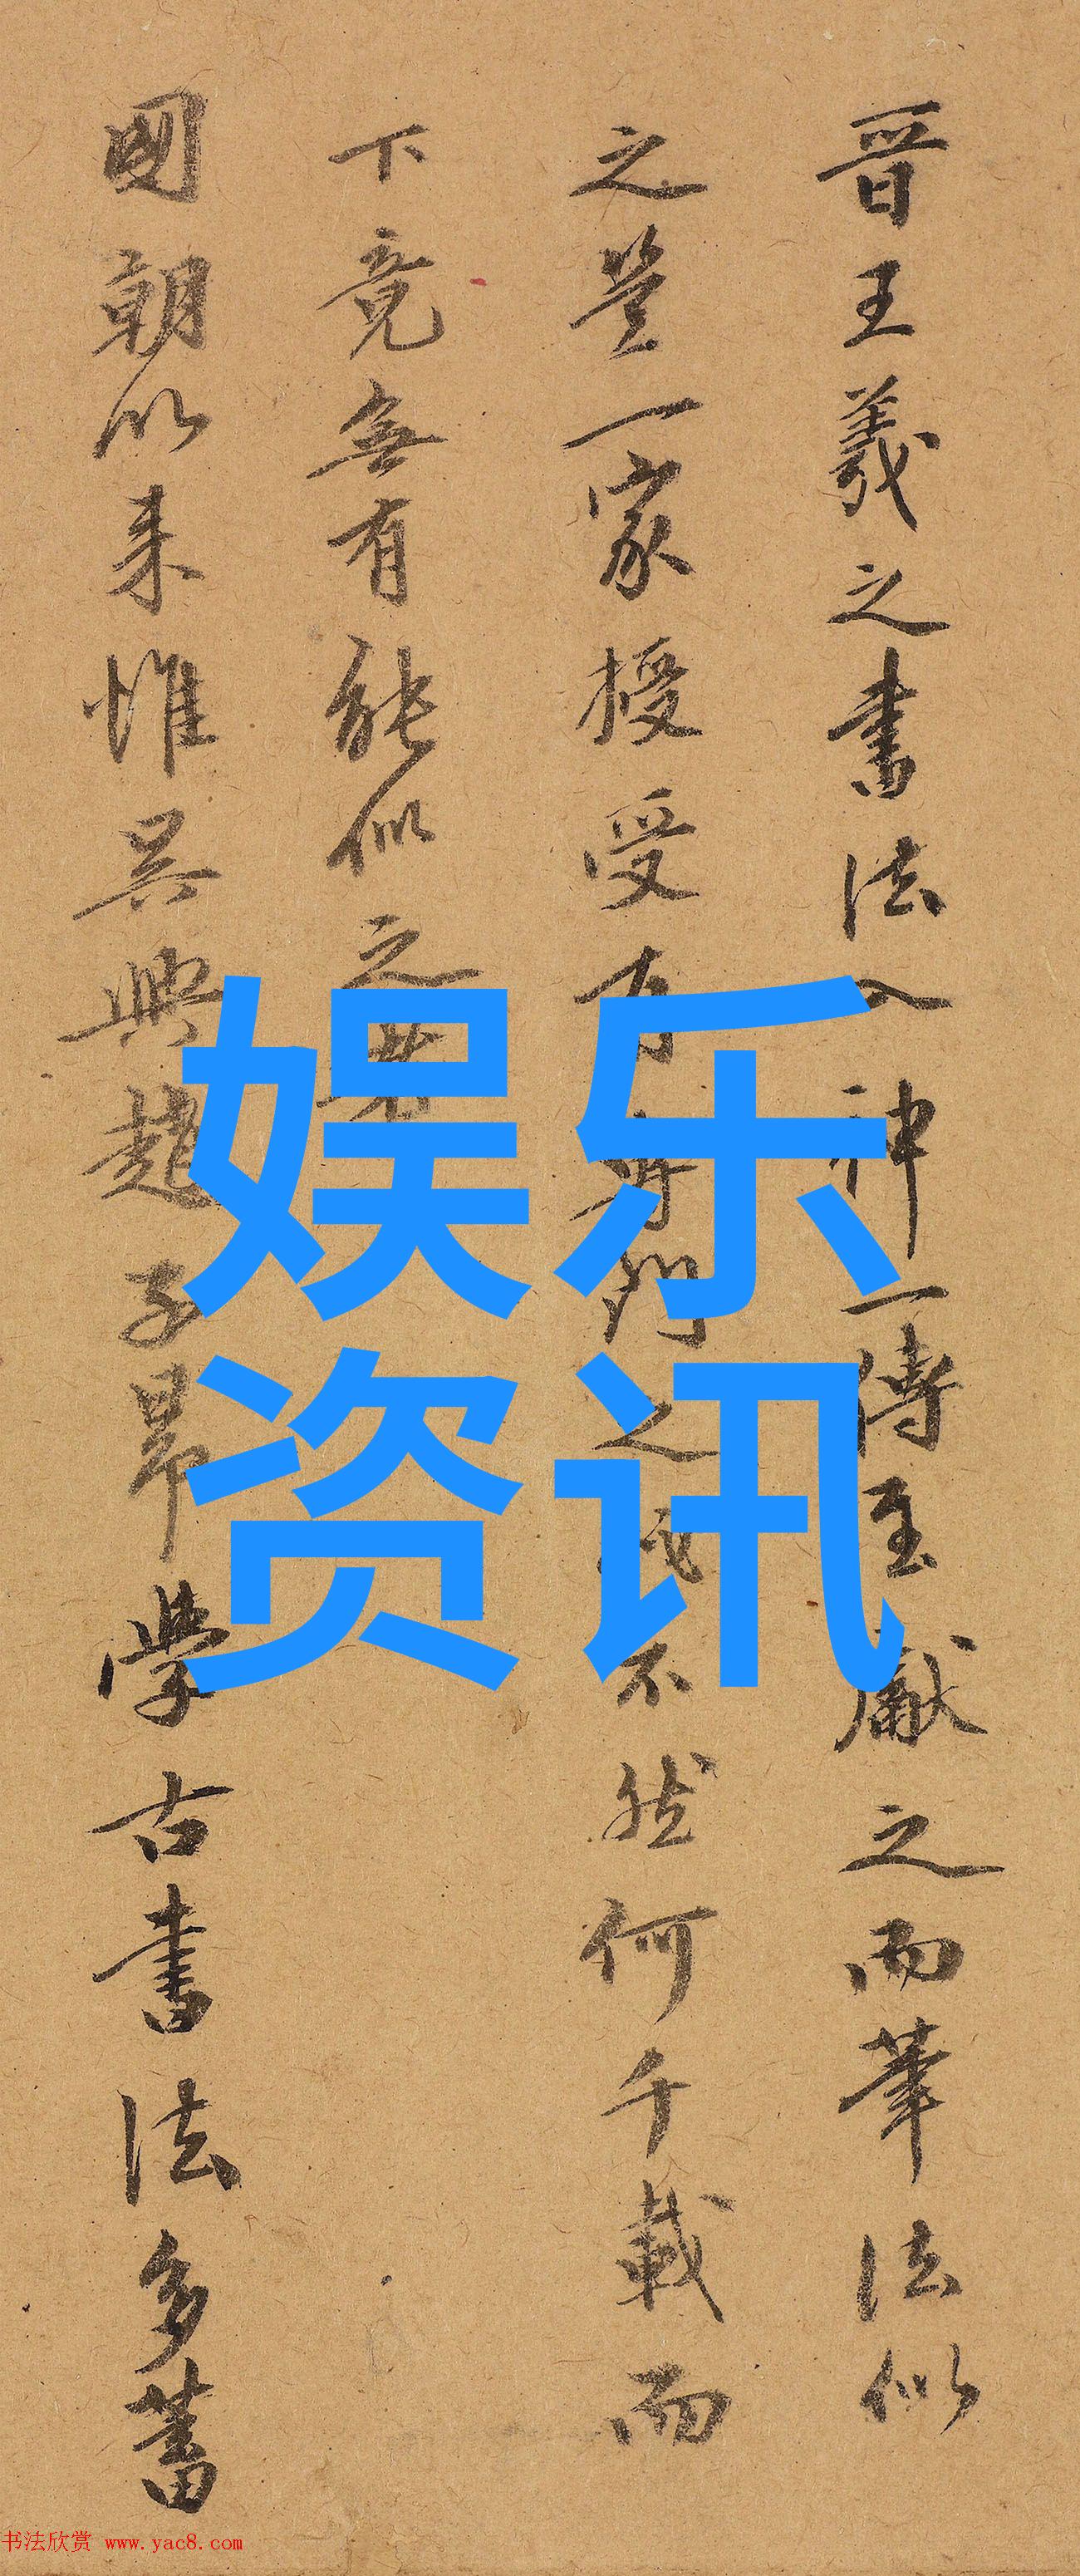 晋王羲之書法入神一傳至獻之而筆法似
之豈一家授受有專門之不然何千載而
下竟無有能似之者
國朝以来惟吳興趙子昂學古書法多蓄
娱乐
资讯
书法欣赏 www.yac8.com